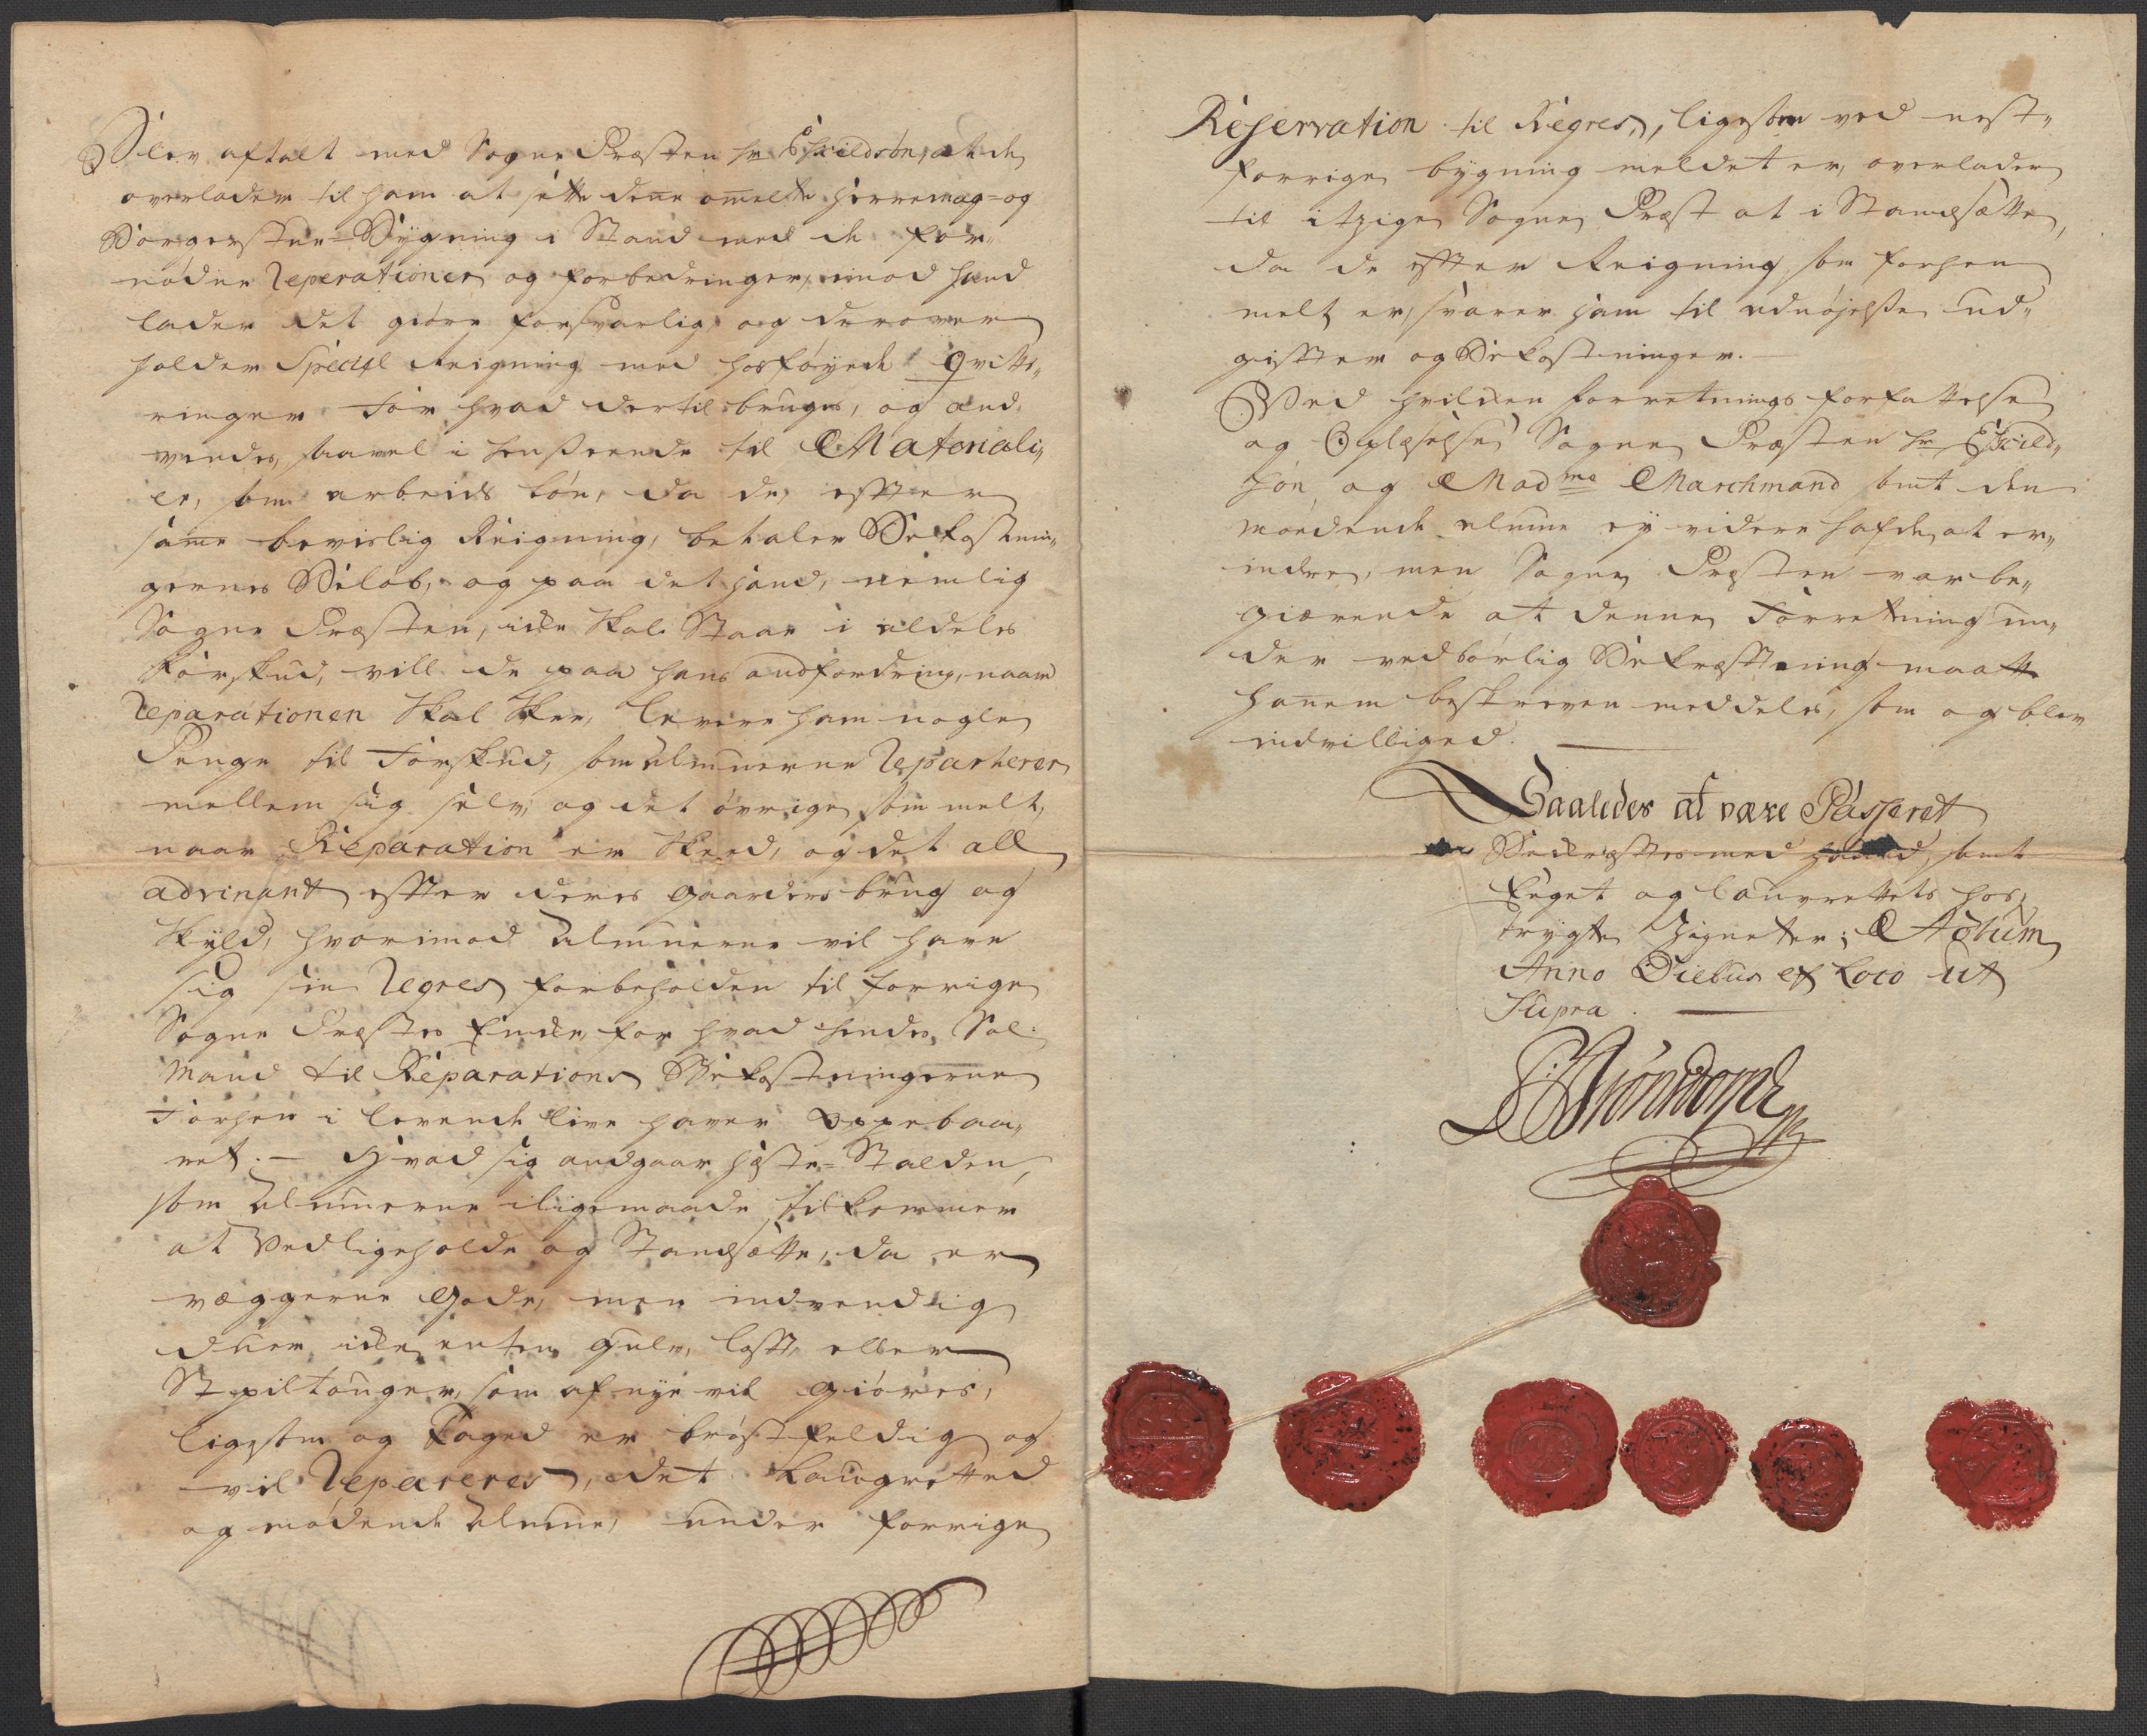 Blev aftalt med Sogne Præsten hr Eskildsøn, at de
overlader til ham at sette denne omelte herremag= og
Borgerstue=Bygning i Stand med de for„
nødne Reperationer og forbedringer, imod hand
lader det giøre forsvarlig og derover
holder Special Reigning med hosføyede qvitte„
ringer for hvad dertil bruges, og and„
vendes, saavel i henseende til Materiali„
er, som arbeids løn, da de efter
same bevislig Reigning, betaler Bekostnin„
gernes Beløb, og paa det hand, nemlig
Sogne Præsten, icke skal staae i aldeles
forskud, vill de paa hans andfordring, naar
Reparationen skal skee, levere ham nogle
Penge til Forskud, som almuerne Reparterer
mellem sig selv, og det øvrige som melt,
naar Reparation er skeed, og det all
advinant efter deres gaarders brug og
skyld, hvorimod Almuerne vil have
sig sin Regres forbeholden til forrige
Sogne Præstes Encke, for hvad hendes Sal.
Mand til Reparations Bekostningerne
forhen i levende live haver oppebaa„
ret. — Hvad sig andgaar heste=Stalden,
som Almuerne iligemaade tilkommer
at vedligeholde og Standsætte, da er
væggerne gode, men indvendig
duer icke enten gulv, loft, eller
Spiltouger, som af nye vil giøres,
ligesom og Taged er brøstfeldig og
vil Repareres, det Laugretted
og mødende Almue, under forrige
Reservation til Regres, ligesom ved nest„
forrige bygning meldet er, overlader
til itzige Sogne Præst at i Standsætte,
da de efter Reigning, som forhen
melt er, svarer ham til udnøjelse ud„
gifter og Bekostninger. —
Ved hvilcken forretnings forfattelse
og Oplæselse Sogne Præsten hr Eskild„
søn, og Madme Marchmand samt den
mødende almue ey videre hafde at er„
indre, men Sogne Præsten var be„
giærende at denne Forretning un„
der vedbørlig Bekræftning maatte
hannem beskreven meddeles, som og blev
indvilliged. —
Saaledes at være Passeret
Bekræftes med haand, samt
fuget og laugrettets hos„
trygte Zigneter; Actum
Anno Diebus et Loco ut
Supra. —